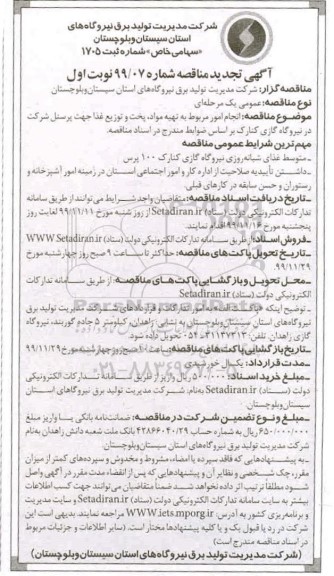 شرکت مدیریت تولید برق نیروگاه‌های
استان سیستان و بلوچستان
«سهامی خاص» شماره ثبت ۱۷۰۵
آگهی تجدید مناقصه شماره ۹۹/۰۷ نوبت اول
مناقصه گزار: شرکت مدیریت تولید برق نیروگاه‌های استان سیستان و بلوچستان
نوع مناقصه: عمومی یک مرحله‌ای
موضوع مناقصه: انجام امور مربوط به تهیه مواد، پخت و توزیع غذا جهت پرسنل شرکت
در نیروگاه گازی کنارک بر اساس ضوابط مندرج در اسناد مناقصه.
مهم‌ترین شرایط عمومی مناقصه
ـ متوسط غذای شبانه‌روزی نیروگاه گازی کنارک ۱۰۰ پرس
ـ داشتن تأییدیه صلاحیت از اداره کار و امور اجتماعی استان در زمینه امور آشپزخانه و
رستوران و حسن سابقه در کارهای قبلی.
ـ تاریخ دریافت اسناد مناقصه: متقاضیان واجد شرایط می‌توانند از طریق سامانه
تدارکات الکترونیکی دولت (ستاد) Setadiran.ir از روز شنبه مورخ ۹۹/۱۱/۱۱ لغایت روز
پنجشنبه مورخ ۹۹/۱۱/۱۶ اقدام نمایند.
ـ فروش اسناد: از طریق سامانه تدارکات الکترونیکی دولت (ستاد) WWW Setadiran.ir
ـ تاریخ تحویل پاکت‌های مناقصه: حداکثر تا ساعت ۹ صبح روز چهارشنبه مورخ
۹۹/۱۱/۲۹
ـ محل تحویل و بازگشایی پاکت‌های مناقصه: از طریق سامانه تدارکات
الکترونیکی دولت (ستاد) Setadiran.ir
ـ توضیح اینکه پاکت الف به امور تدارکات و قراردادهای شرکت مدیریت تولید برق
نیروگاه‌های استان سیستان و بلوچستان به نشانی زاهدان، کیلومتر ۵ جاده گوربند، نیروگاه
گازی زاهدان، تلفن: تحویل داده شود.
ـ تاریخ بازگشایی پاکت‌های مناقصه: صبح روز چهارشنبه مورخ ۹۹/۱۱/۲۹
ـ مدت قرارداد: یکسال خورشیدی
ـ مبلغ خرید اسناد: ریال واریز از طریق سامانه تدارکات الکترونیکی
دولت (ستاد) Setadiran.ir به‌نام: شرکت مدیریت تولید برق نیروگاه‌های استان
سیستان و بلوچستان.
ـ مبلغ و نوع تضمین شرکت در مناقصه: ضمانت‌نامه بانکی یا واریز مبلغ
ریال به شماره حساب بانک ملت شعبه دانش زاهدان به‌نام
شرکت مدیریت تولید برق نیروگاه‌های استان سیستان و بلوچستان.
ـ به پیشنهادهایی که فاقد سپرده یا امضاء، مشروط و مخدوش و سپرده‌های کمتر از میزان
مقرر، چک شخصی و نظایر آن و پیشنهادهایی که پس از انقضاء مدت مقرر در آگهی واصل
شود مطلقاً ترتیب اثر داده نخواهد شد ضمناً متقاضیان می‌توانند جهت کسب اطلاعات
بیشتر به سایت سامانه تدارکات الکترونیکی دولت (ستاد) Setadiran.ir و سایت مدیریت
و برنامه‌ریزی کشور به آدرس: WWW.iets.mporg.ir مراجعه نمایند. بدیهی است این
شرکت در رد یا قبول یک و یا کلیه پیشنهادها مختار است. (سایر اطلاعات و جزئیات مربوط
در اسناد مناقصه مندرج است)
(شرکت مدیریت تولید برق نیروگاه‌های استان سیستان و بلوچستان)